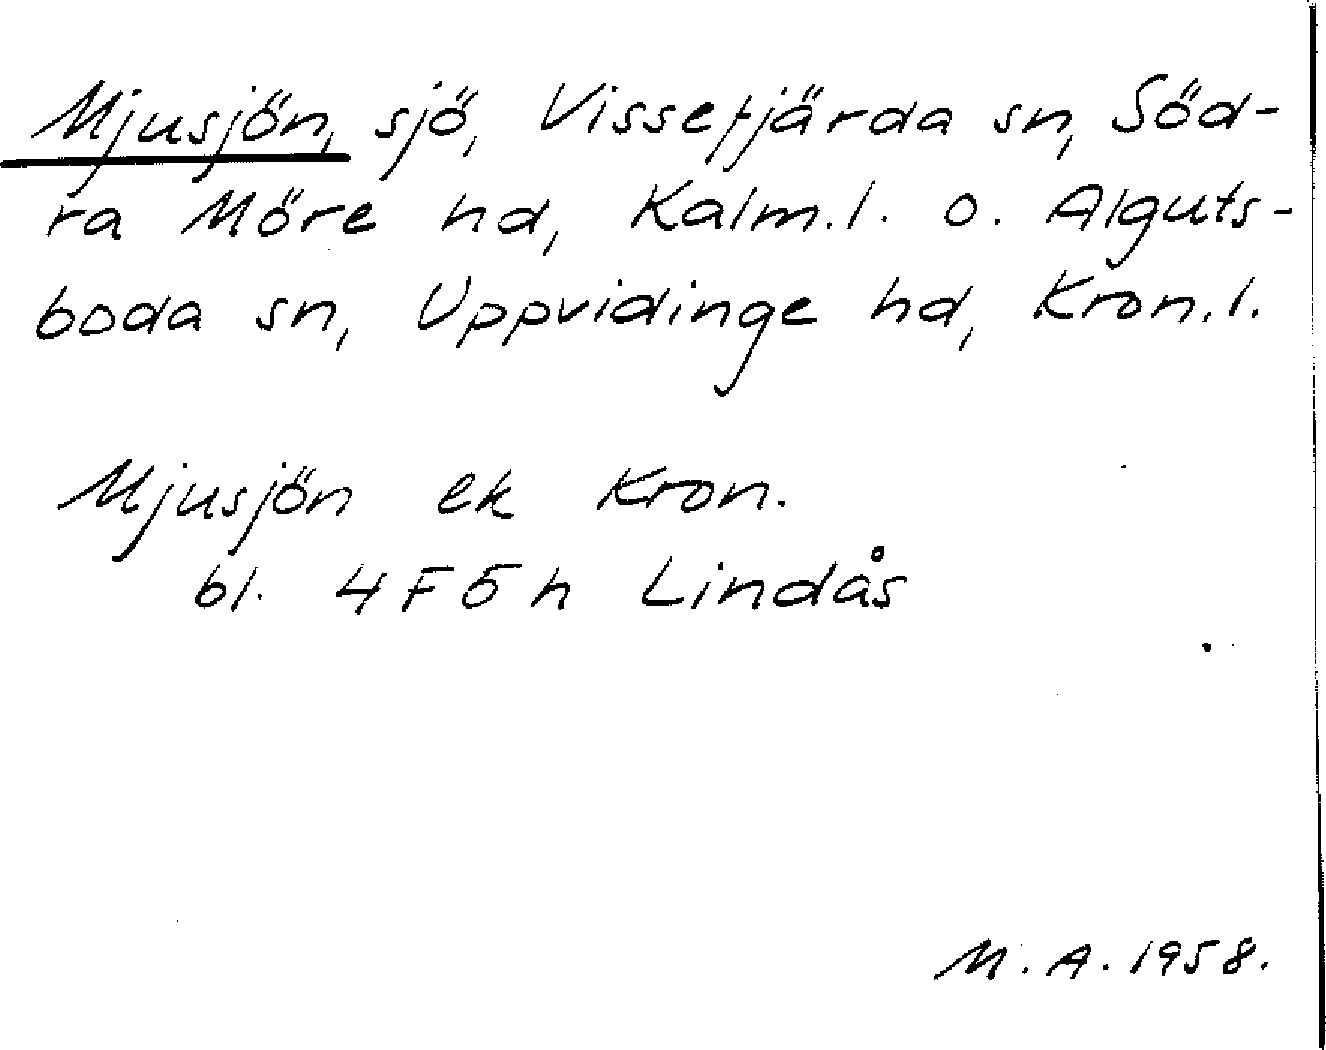 Mjusjön, sjö, Vissefjärda sn, Söd-
ra Möre hd, Kalm.l. o. Alguts-
boda sn, Uppvidinge hd, Kron.l.
Mjusjön ek Kron.
bl. 4F5h Lindås
M.A. 1958.